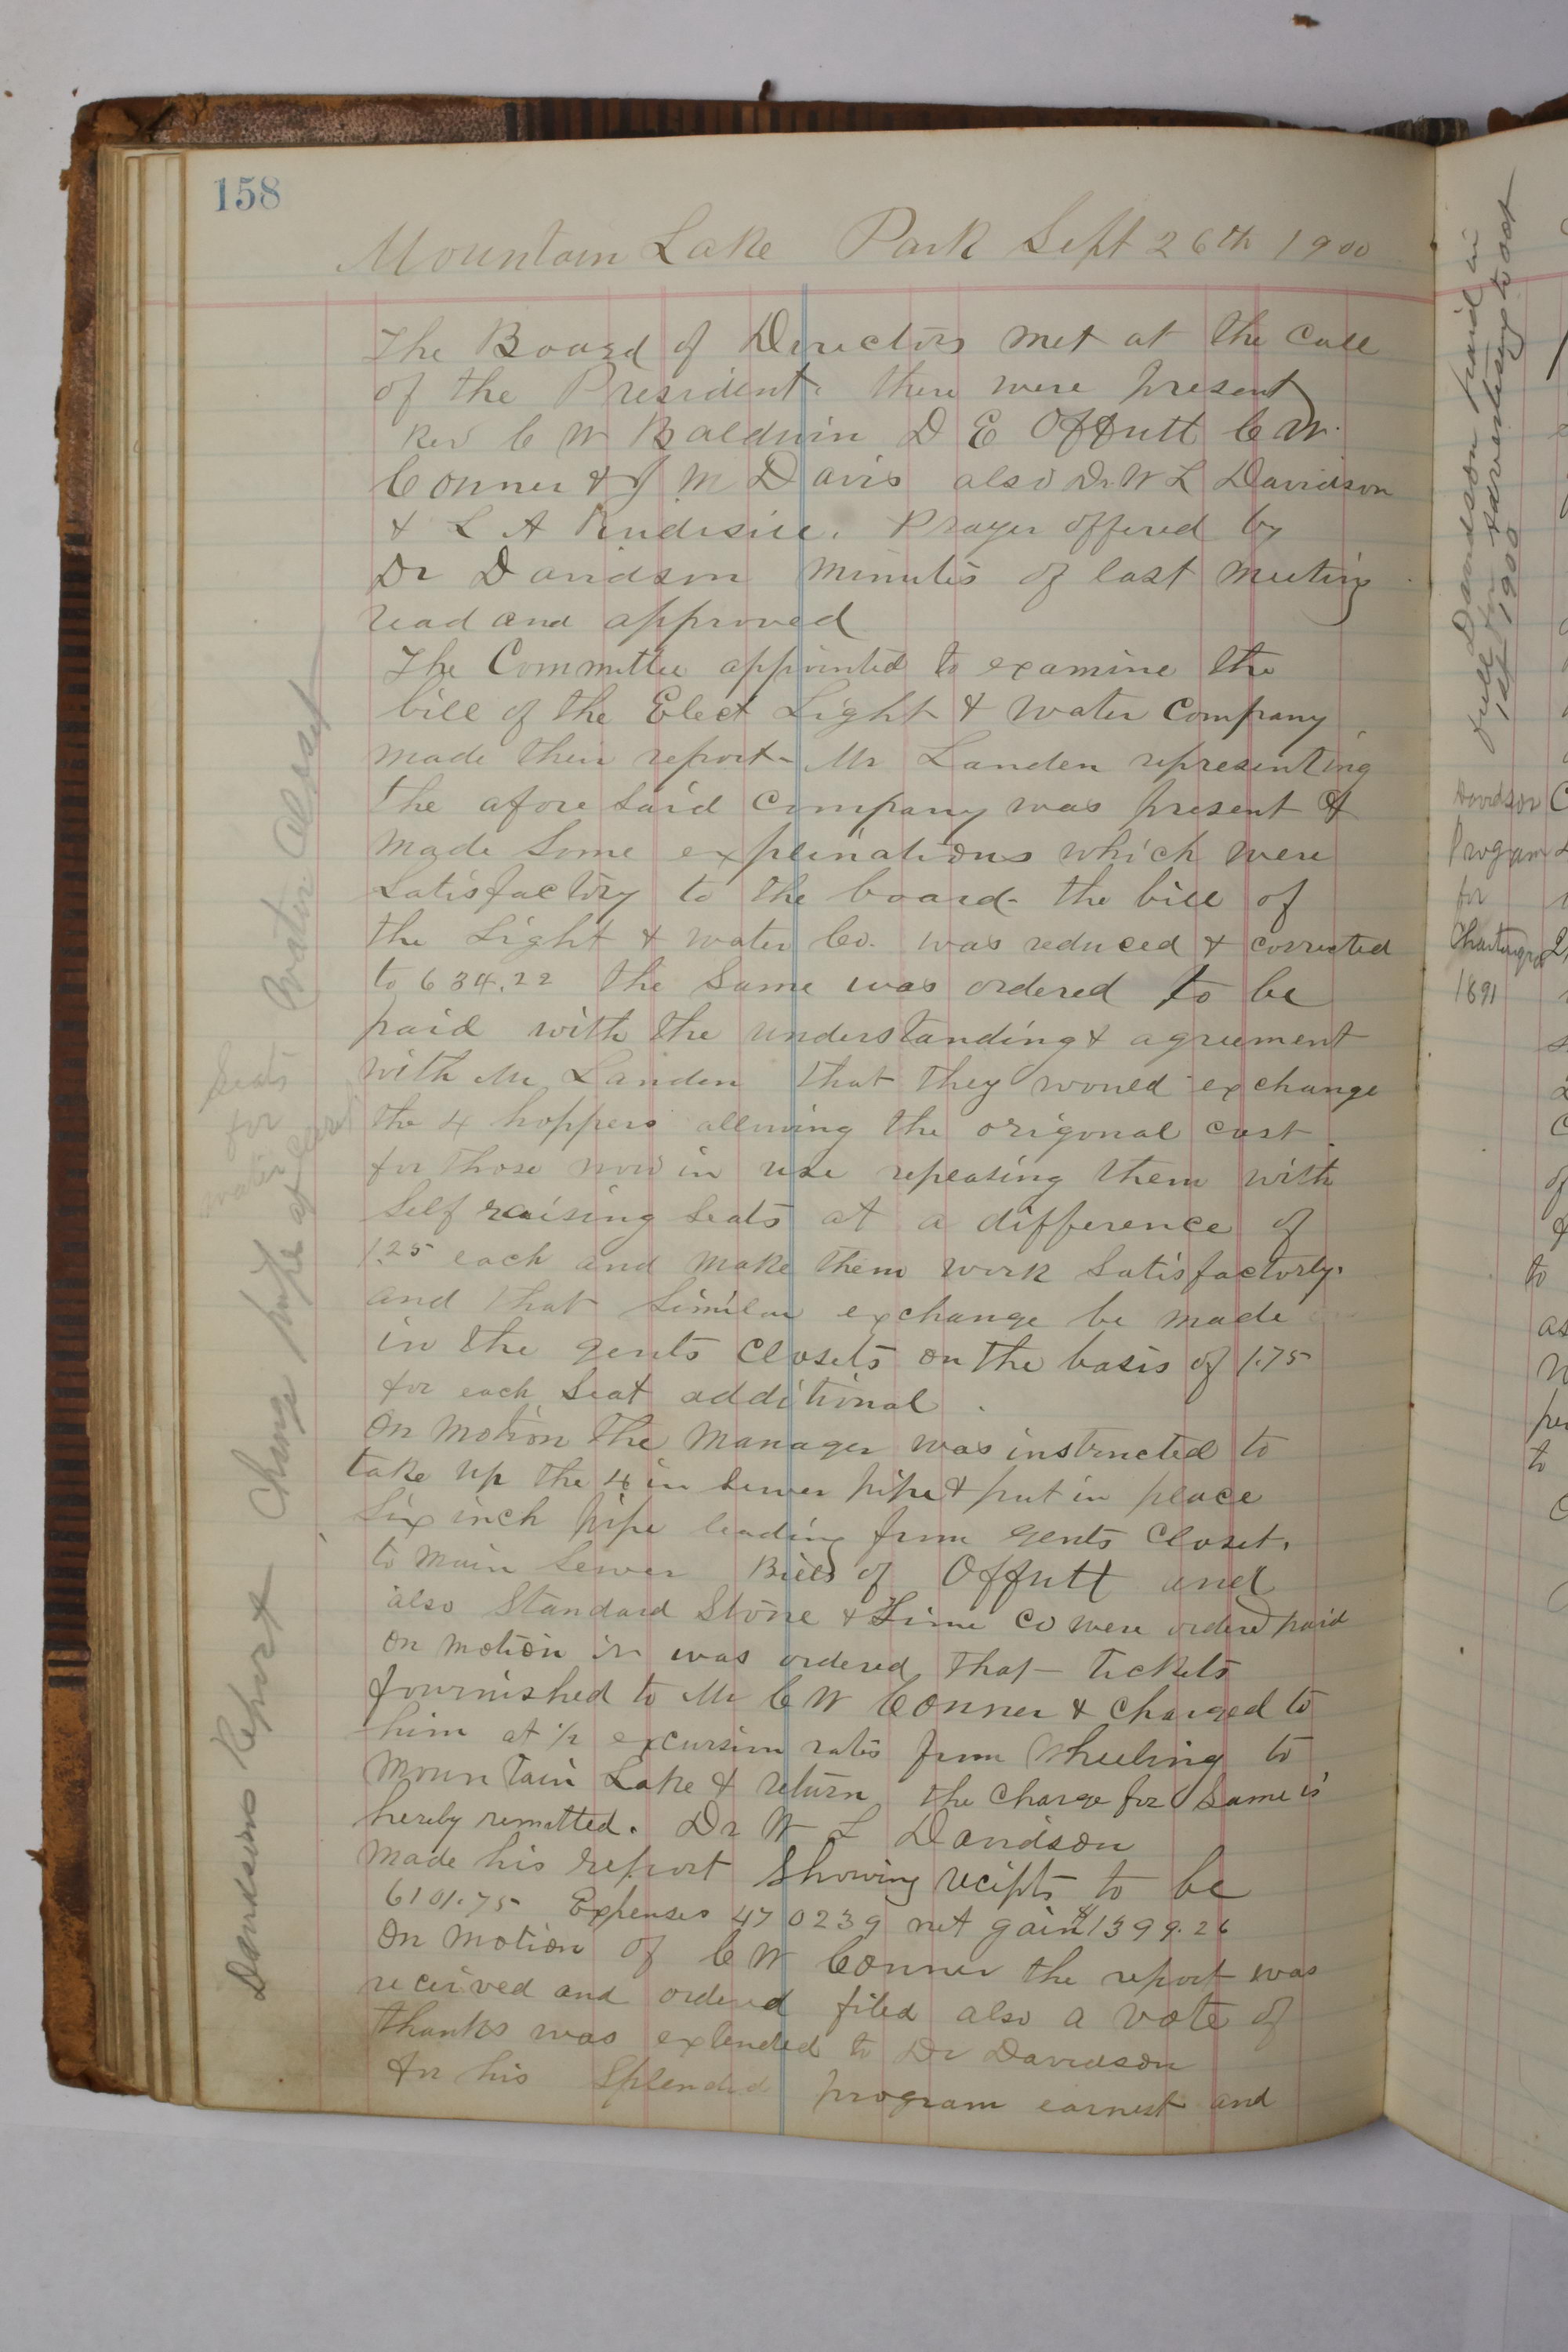 158
Mountain Lake Park Sept 26th 1900
The Board of Directors met at the call
of the President. there were present
Rev C W Baldwin D E Offutt C W.
Conner & J M Davis also Dr. W L Davidson
& L A Rudisill. Prayer offered by
Dr Davidson minutes of last meeting
read and approved
The Committee appointed to examine the
bill of the Elect Light & Water Company
made their report - Mr Landen representing
the afore said Company was present &
made some explinations which were
Satisfactory to the board - the bill of
the Light & water Co. was reduced & corrected
to 634.22 the same was ordered to be
paid with the understanding & agreement
with Mr Landen that they would exchange
the 4 hoppers allowing the origonal cost
for those now in use repeasing them with
Self raising seats at a difference of
1.25 each and make them work Satisfactorly.
and that similar exchange be made
in the gents Closets on the basis of 1.75
for each Seat additional.
On motion the manager was instructed to
take up the 4 in sewer pipe & put in place
Six inch pipe leading from gents Closet.
to main sewer Bills of Offutt and
also Standard Stone & Lime Co were ordered paid
on motion it was ordered that tickets
fournished to Mr C W Conner & charged to
him at 1/2 excursion rates from Wheeling to
Mountain Lake & return, the charge for same is
hereby remitted. Dr W L Davidson
made his report showing recipts to be
6101.75 Expenses 470239 net gain 1399.26
On motion of C W Conner the report was
received and ordered filed also a vote of
thanks was extended to Dr Davidson
for his Splendid program earnest and
Seats
for
water
Water Closet
Change pipe at
Davidsons Report
Davidson paid in
full for advertising to oct
1st 1900
Davidson
Program
for
1891